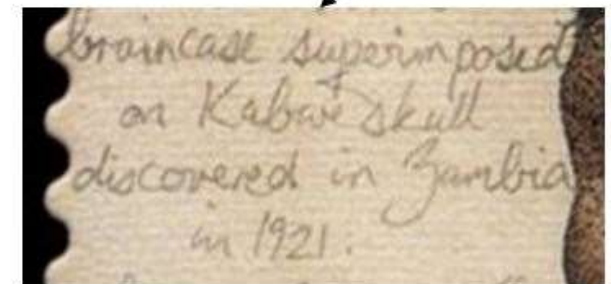 braincase superimposed
on Kabwe skull
discovered in Zambia
in 1921.